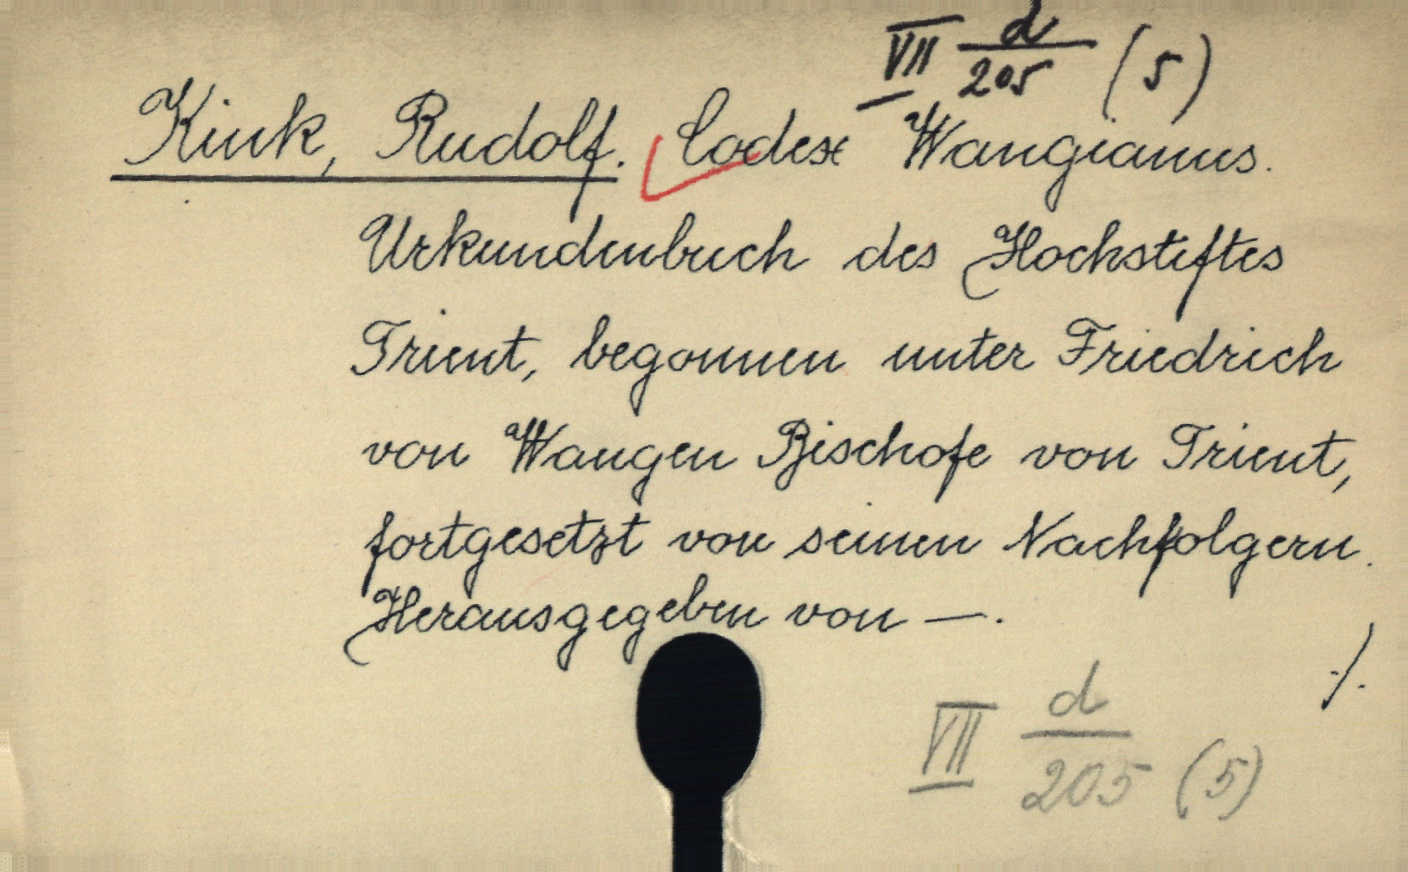 VII d/205 (5)
Kink, Rudolf. Codex Wangianus.
Urkundenbuch des Hochstiftes
Trient, begonnen unter Friedrich
von Wangen Bischofe von Trient,
fortgesetzt von seinen Nachfolgern.
Herausgegeben von —.
./.
VII d/205 (5)